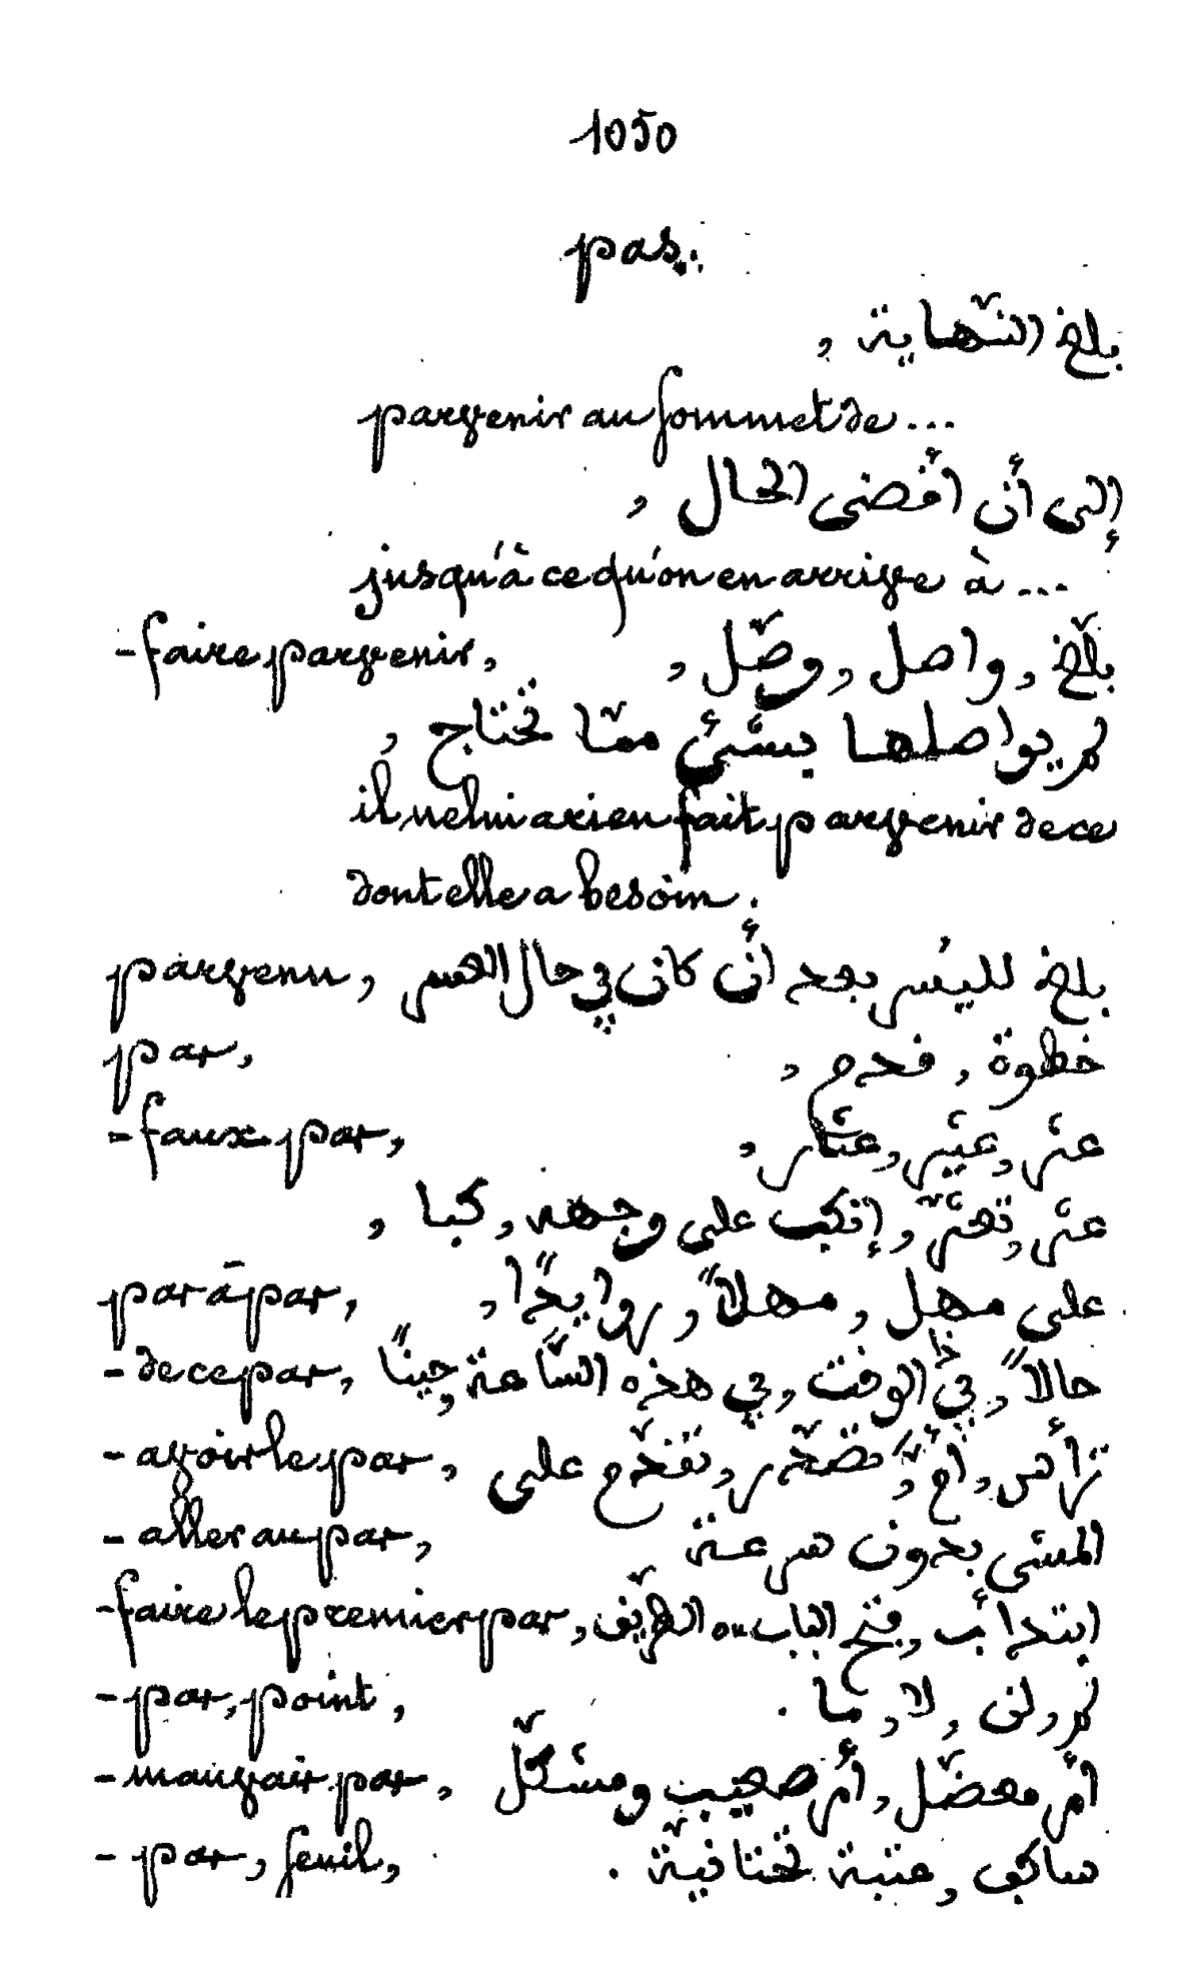 1050
pas..
بلغ النّهاية ,
parvenir au sommet de ...
إلى أن أفضى الحال ,
jusqu'à ce qu'on en arrive à ...
- faire parvenir, بلّغ , واصل , وصّل ,
لم يواصلها بشئ ممّا تحتاج ,
il ne lui a rien fait parvenir de ce
dont elle a besoin.
parvenu, بلغ لليُسر بعد أن كان في حال العسر
pas, خطوة , قدم ,
- faux pas, عثر , عثير , عثار ,
عثر , تعثّر , إنكب على وجهه , كبا ,
pas à pas, على مهل , مهلاً , روايدًا ,
- de ce pas, حالاً , في الوقت , في هذه السّاعة , حينًا
- avoir le pas, ترأس , أم , تصدّر , تقدّم على
- aller au pas, المشي بدون سرعة
- faire le premier pas, ابتدأ , فتح الباب ou الطريق
- pas, point, لم , لن , لا , ما .
- mauvais pas, أمر معضّل , أمر صعيب ومشكّل
- pas, seuil, ساكف , عتبة تحتانيّة .